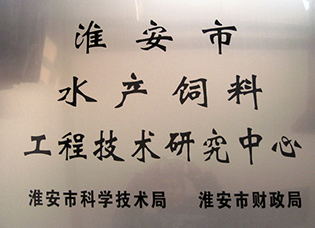 淮安市
水产饲料
工程技术研究中心
淮安市科学技术局 淮安市财政局